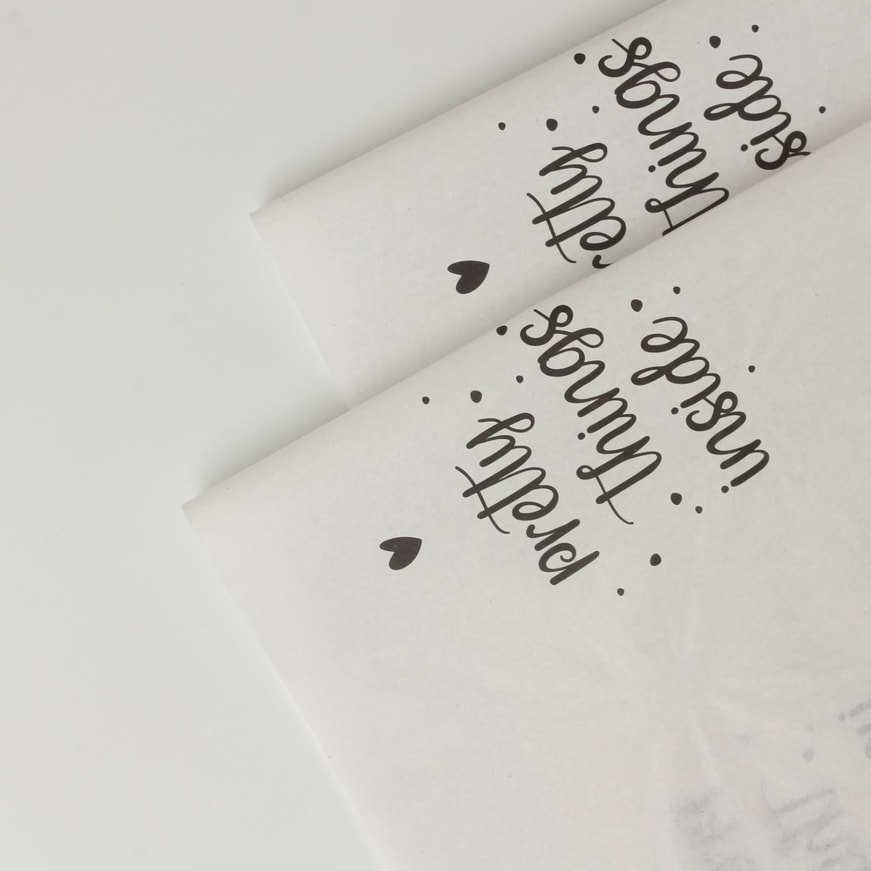 pretty
things
inside
things
side